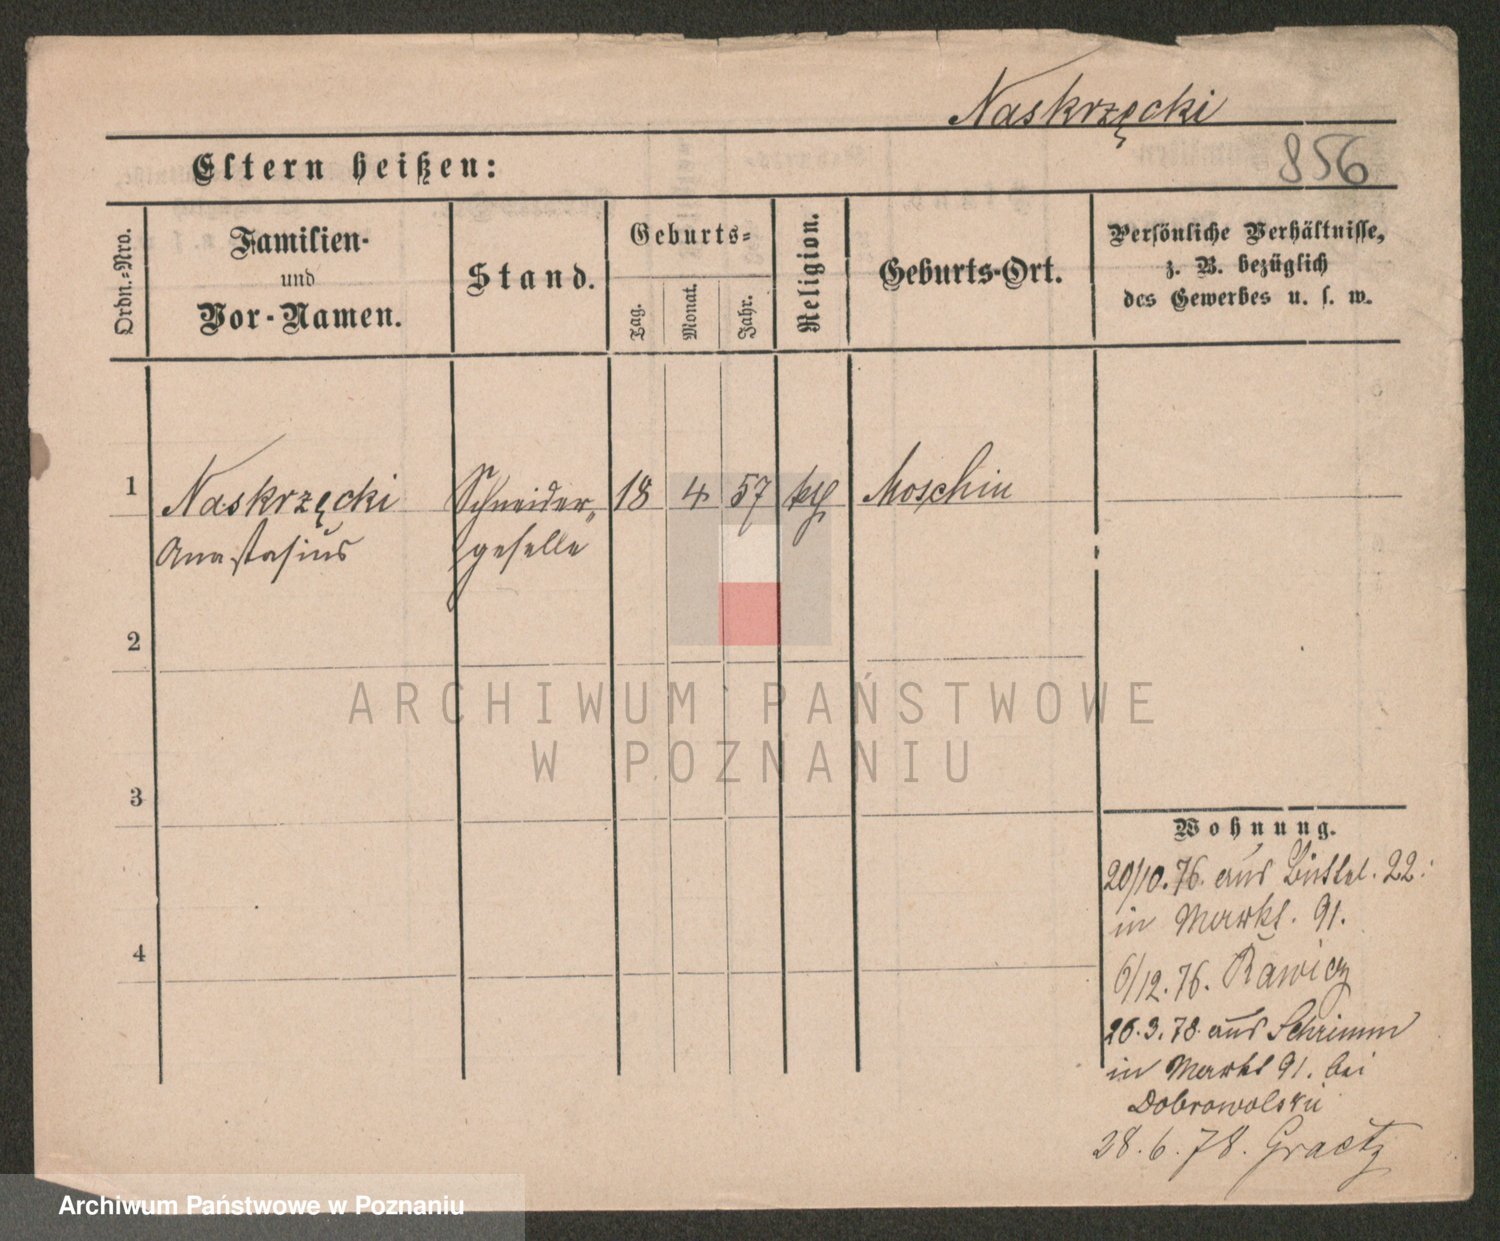 Naskrzęcki
856
Eltern heißen:
Ordn.-Nro.
Familien-
und
Vor-Namen.
Stand.
Geburts-
Tag.
Monat.
Jahr.
Religion.
Geburts-Ort.
Persönliche Verhältnisse,
z. B. bezüglich
des Gewerbes u. s. w.
1 Naskrzęcki Schneider- 18 4 57 kth Moschin
Anastasius geselle
2
3
4
ARCHIWUM PAŃSTWOWE
W POZNANIU
Wohnung.
20/10. 76. aus 22.
in Markt. 91.
6/12. 76. Rawicz
26. 3. 78. aus Schrimm
in Markt 91. bei
Dobrowolski
28. 6. 78. Graetz
Archiwum Państwowe w Poznaniu